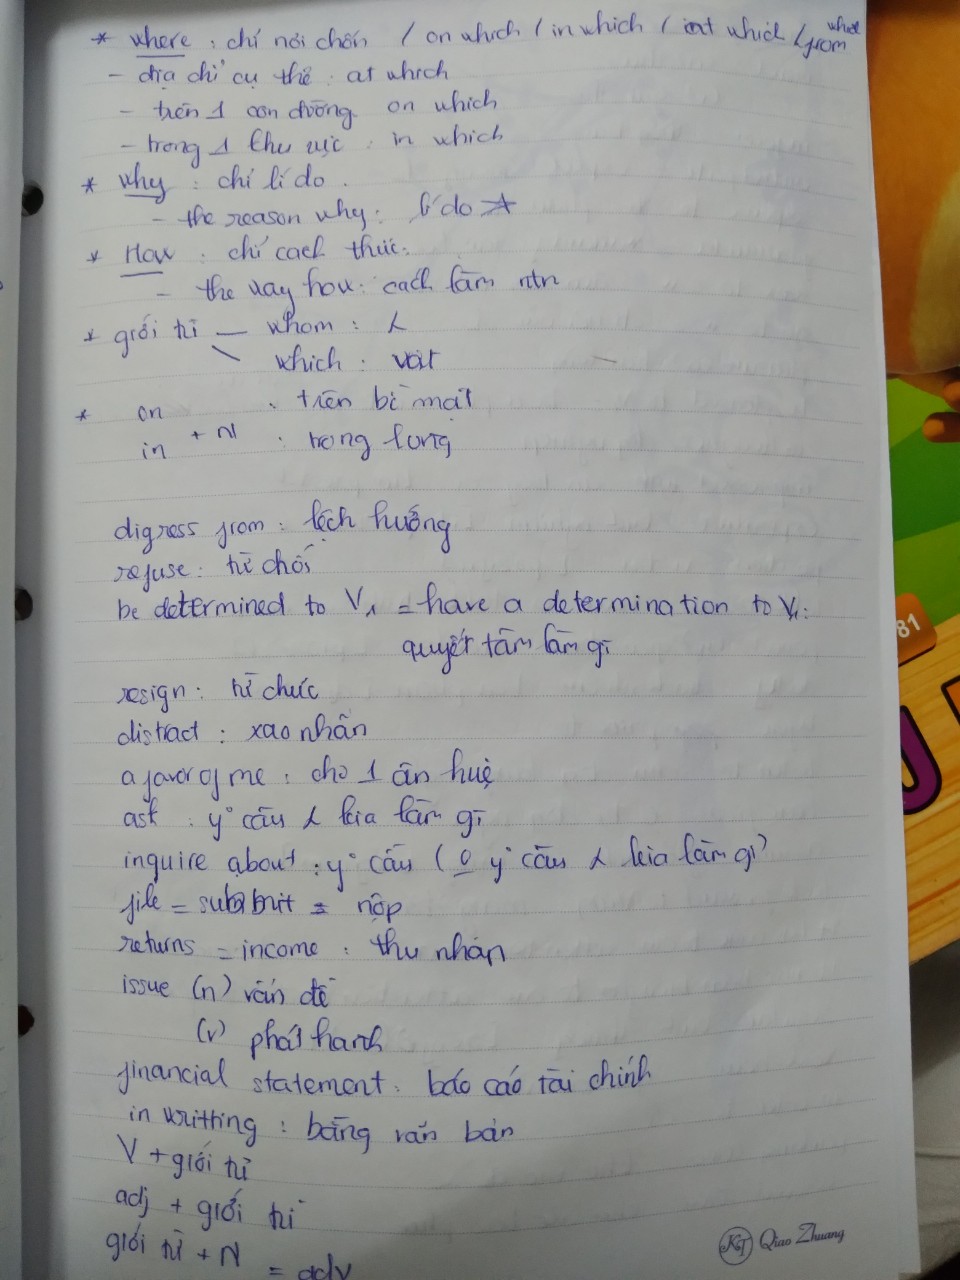 * where : chỉ nơi chốn / on which / in which / at which / from which
- địa chỉ cụ thể : at which
- trên 1 con đường on which
- trong 1 khu vực : in which
* why : chỉ lí do .
- the reason why : lí do
* How : chỉ cách thức.
- the way how : cách làm ntn
* giới từ — whom :
which : vật
* on : trên bề mặt
in + N : trong lòng
digress from : lệch hướng
refuse : từ chối
be determined to V1 = have a determination to V1 :
quyết tâm làm gì
resign : từ chức
distract : xao nhãn
a favor of me : cho 1 ân huệ
ask : y° cầu kia làm gì
inquire about : y° cầu ( y° cầu kia làm gì)
file = submit = nộp
returns = income : thu nhận
issue (n) vấn đề
(v) phát hanh
financial statement : báo cáo tài chính
in writting : bằng văn bản
V + giới từ
adj + giới từ
giới từ + N
= adv
81
KT Qiao Zhuang